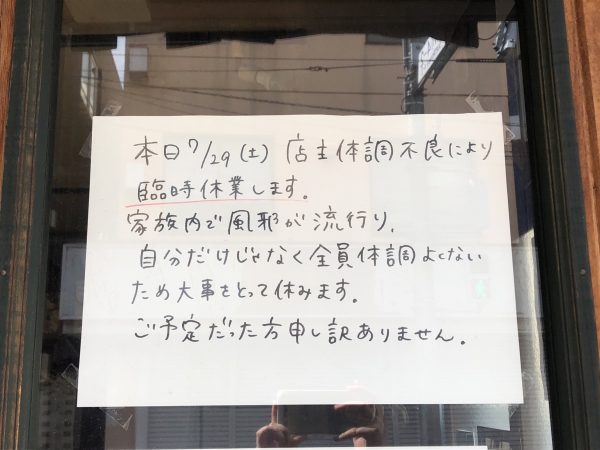 本日7/29(土) 店主体調不良により
臨時休業します。
家族内で風邪が流行り、
自分だけじゃなく全員体調よくない
ため大事をとって休みます。
ご予定だった方申し訳ありません。